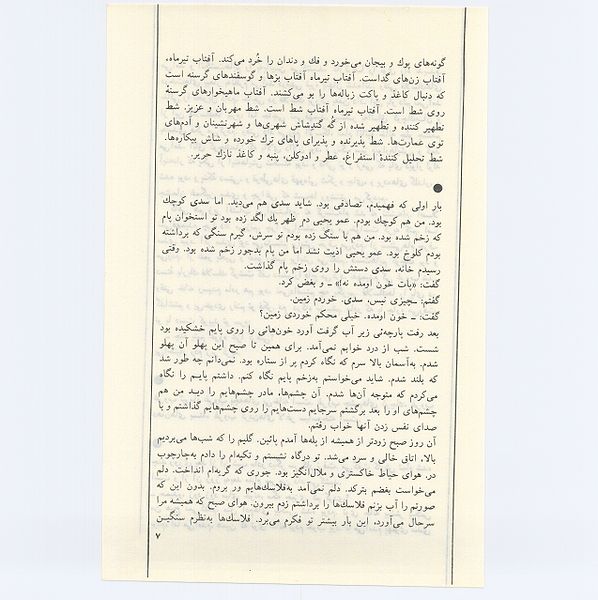 گونه‌های پوك و بیجان می‌خورد و فك و دندان را خُرد می‌کند. آفتاب تیرماه،
آفتاب زن‌های گداست. آفتاب تیرماه آفتاب بزها و گوسفندهای گرسنه است
که دنبال کاغذ و پاکت زباله‌ها را بو می‌کشند. آفتاب ماهیخوارهای گرسنهٔ
روی شط است. آفتاب تیرماه آفتاب شط است. شط مهربان و عزیز. شط
تطهیر کننده و تطهیر شده از گُه گندِشاش شهری‌ها و شهرنشینان و آدم‌های
توی عمارت‌ها. شط پذیرنده و پذیرای پاهای ترك خورده و شاش بیکاره‌ها.
شط تحلیل کنندهٔ استفراغ، عطر و ادوکلن، پنبه و کاغذ نازك حریر.
●
بار اولی که فهمیدم، تصادفی بود. شاید سدی هم می‌دید. اما سدی کوچك
بود. من هم کوچك بودم. عمو یحیی دم ظهر یك لگد زده بود تو استخوان پام
که زخم شده بود. من هم با سنگ زده بودم تو سرش، گیرم سنگی که برداشته
بودم کلوخ بود. عمو یحیی اذیت نشد اما من پام بدجور زخم شده بود. وقتی
رسیدم خانه، سدی دستش را روی زخم پام گذاشت.
گفت: «پات خون اومده نه!» ـ و بغض کرد.
گفتم: ـ چیزی نیس، سدی. خوردم زمین.
گفت: ـ خون اومده. خیلی محکم خوردی زمین؟
بعد رفت پارچه‌ئی زیر آب گرفت آورد خون‌هائی را روی پایم خشکیده بود
شست. شب از درد خوابم نمی‌آمد. برای همین تا صبح این پهلو آن پهلو
شدم. به‌آسمان بالا سرم که نگاه کردم پر از ستاره بود. نمی‌دانم چه طور شد
که بلند شدم. شاید می‌خواستم به‌زخم پایم نگاه کنم. داشتم پایـم را نگاه
می‌کردم که متوجه آن‌ها شدم. آن چشم‌ها. مادر چشم‌هایم را دیـد من هم
چشم‌های او را بعد برگشتم سرجایم دست‌هایم را روی چشم‌هایم گذاشتم و با
صدای نفس زدن آنها خواب رفتم.
آن روز صبح زودتر از همیشه از پله‌ها آمدم پائین. گلیم را که شب‌ها می‌بردیم
بالا، اتاق خالی و سرد می‌شد. تو درگاه نشستم و تکیه‌ام را دادم به‌چارچوب
در. هوای حیاط خاکستری و ملال‌انگیز بود. جوری که گریه‌ام انداخت. دلم
می‌خواست بغضم بترکد. دلم نمی‌آمد به‌فلاسك‌هایم ور بروم. بدون این که
صورتم را آب بزنم فلاسك‌ها را برداشتم زدم بیرون. هوای صبح که همیشه مرا
سرحال می‌آورد، این بار بیشتر تو فکرم می‌بُرد. فلاسك‌ها به‌نظرم سنگیـن
۷